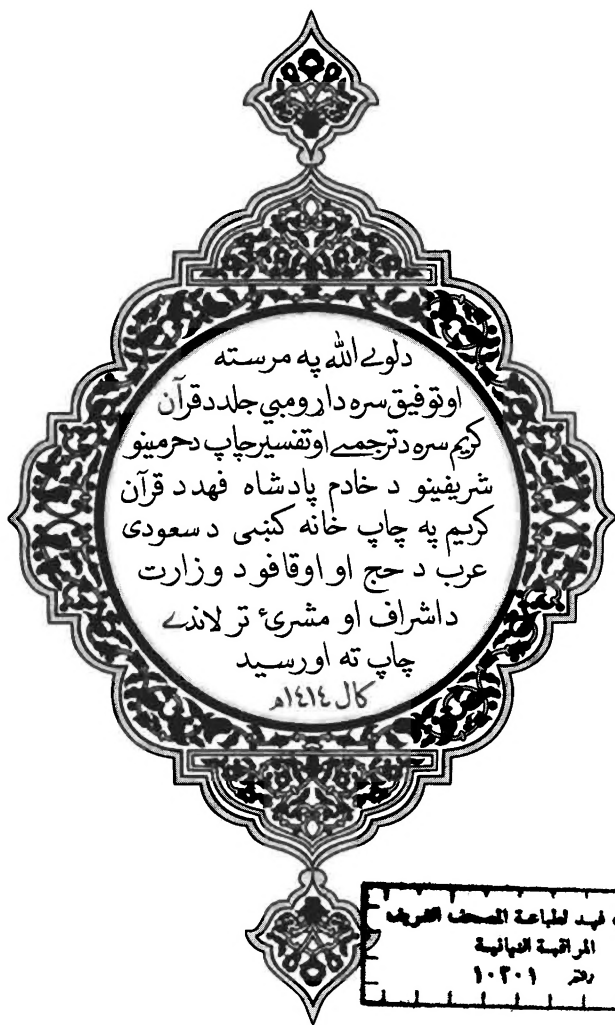 دلوے الله په مرسته
اوتوفیق سره داړومبي جلد د قرآن
کریم سره د ترجمے او تفسیر چاپ د حرمینو
شریفینو د خادم پادشاه فهد د قرآن
کریم په چاپ خانه کښی د سعودی
عرب د حج او اوقافو د وزارت
د اشراف او مشرئ تر لاندے
چاپ ته اورسید
کال ١٤١٤ﻫ
فهد لطباعة المصحف الشريف
المراقبة النهائية
١٠٢٠١